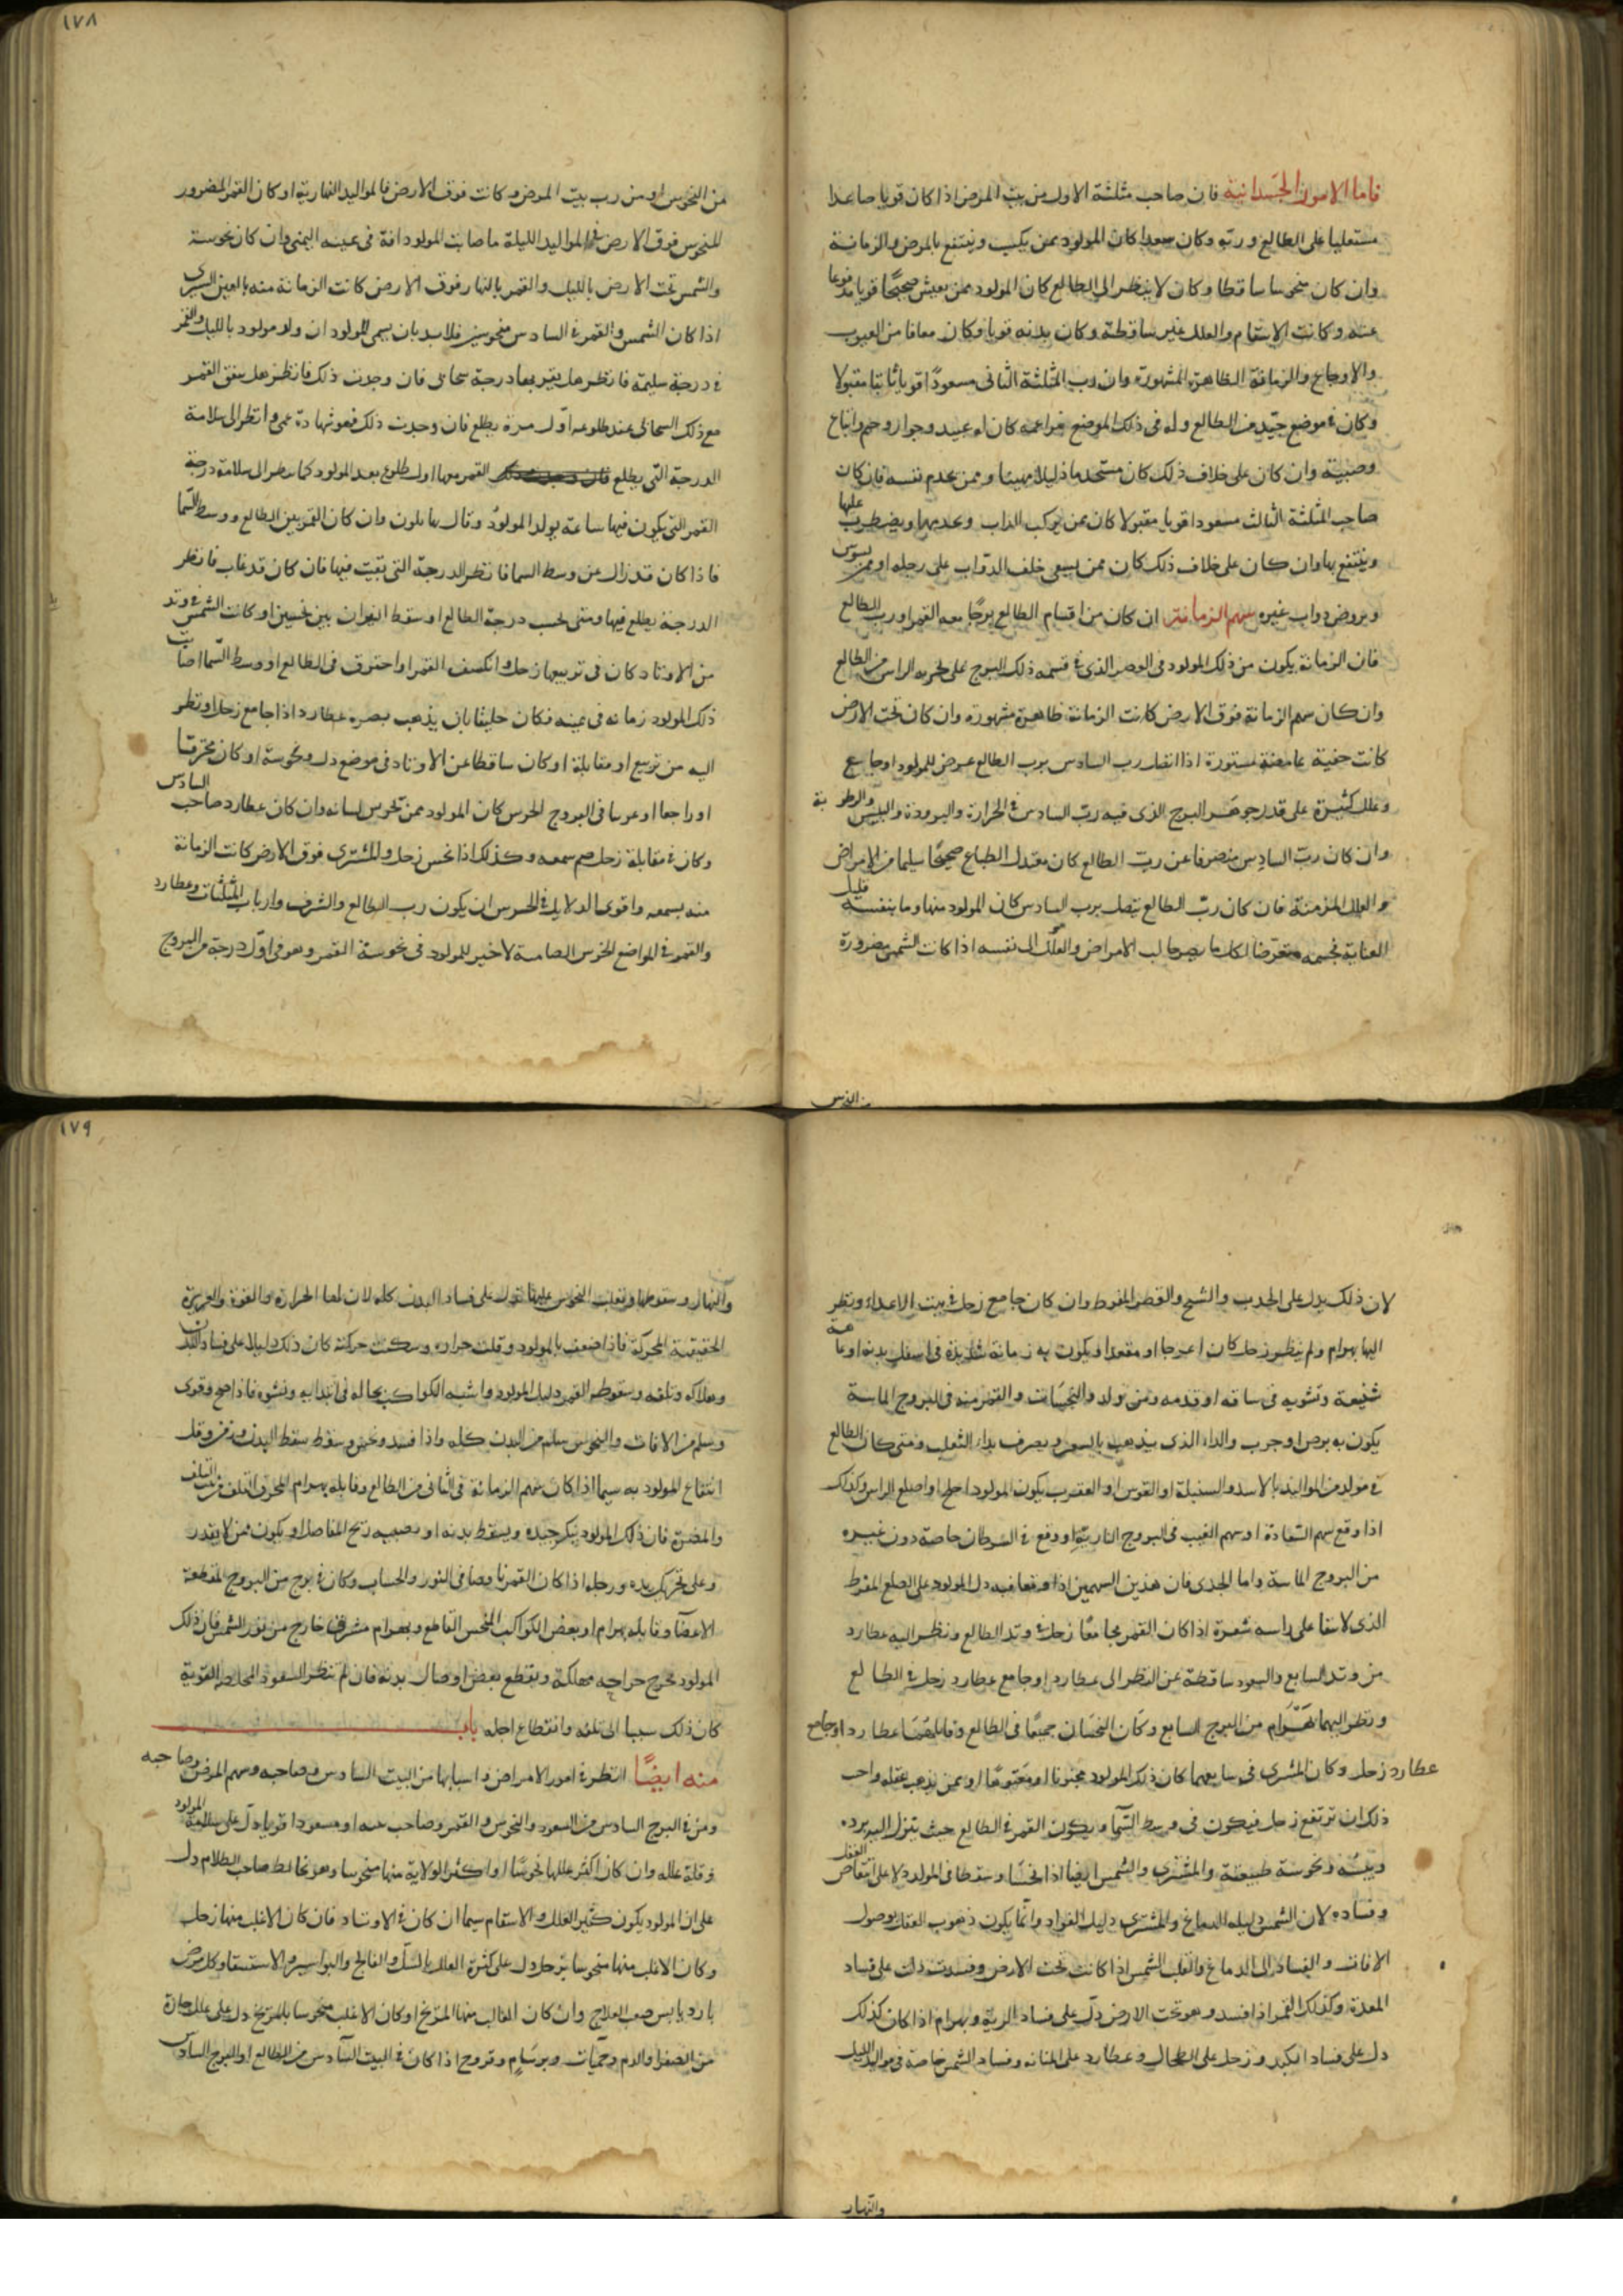 فاما الامور الجسدانية فان صاحب مثلثة الاول من بيت المرض اذا كان قويا صاعدا
مستعليا على الطالع وربه وكان سعدا كان المولود ممن يكسب وينتفع بالمرض والزمانة
وان كان منحوسا ساقطا وكان لا ينظر الى الطالع كان المولود ممن يعيش صحيحًا قويا مدفوعا
عنه وكانت الاسقام والعلل غير ساقطة وكان بدنه قويا وكان معافا من العيوب
والاوجاع والزمانة الظاهرة المشهورة وان رب المثلثة الثانى مسعودًا قويا ثابتا مقبولا
وكان فى موضع جيّد من الطالع وله فى ذلك الموضع مزاعمة كان له عبيد وجوار وخدم واتباع
وصبية وان كان على خلاف ذلك كان مستخدما ذليلا مهينا وممن يخدم نفسه فان كان
صاحب المثلثة الثالث مسعودا قويا مقبولا كان ممن يركب الداب ويضطرب عليها
وينتفع بها وان كان على خلاف ذلك كان ممن يسعى خلف الدواب على رجله او ممن يسوس
ويروض دواب غيره سهم الزمانة ان كان من اقسام الطالع برجًا معه القمر او رب الطالع
فان الزمانة يكون من ذلك المولود فى الذى فى قسمه ذلك البرج على تجربه الراس من الطالع
وان كان سهم الزمانة فوق الارض كانت الزمانة ظاهرة مشهورة وان كان تحت الارض
كانت خفية غامضة مستورة اذا اتصل رب السادس برب الطالع عرض للمولود اوجاع
وعلل كثيرة على قدر جوهر البرج الذى فيه رب السادس فى الحرارة والبرودة واليبس والرطوبة
وان كان ربّ السادس منصرفا عن ربّ الطالع كان معتدل الطباع صحيحًا سليما من الامراض
والعلل المزمنة فان كان ربّ الطالع يتصل برب السادس كان المولود منها وما بنفسه قليل
العناية بجسمه متعرّضا لكل ما الامراض والعلل الى نفسه اذا كانت الشمس مضرورة
من النحوس
١٧٨
من النحوس او من رب بيت المرض وكانت فوق الارض فالمواليد النهارية او كان القمر المضرور
للنحوس فوق الارض فى المواليد الليلة اصابت المولود افة فى عينه اليمنى وان كان نحوسة
والشمس تحت الارض بالليل والقمر بالنهار فوق الارض كانت الزمانة منه بالعين اليسرى
اذا كان الشمس والقمر فى السادس منحوسين فلا بد بان يعمى المولود ان ولد مولود بالليل والقمر
فى درجة سليمة فانظر هل يقربها درجة سحابى فان وجدت ذلك فانظر هل يتفق القمر
مع ذلك السحابى عند طلوعه اول مرة يطلع فان وجدت ذلك فهو شهادة عمى وانظر الى سلامة
الدرجة التى يطلع القمر معها اول طلوع بعد المولود كما ينظر الى سلامة درجة
القمر التى يكون فيها ساعة يولد المولود وقال وان كان القمر بين الطالع ووسط السّما
فاذا كان قد زال عن وسط السما فانظر الدرجة التى بقيت فيها فان كان قد غاب فانظر
الدرجة يطلع فيها ومتى تحسب درجة الطالع او سقط النيران بين نحسين او كانت الشمس فى وتد
من الاوتاد كان فى تربيعها زحل وانكسف القمر او احترق فى الطالع او وسط السّما اصابت
ذلك المولود زمانه فى عينه فكان خليقا بان يذهب بصره عطارد اذا جامع زحل او نظر
اليه من تربيع او مقابلة او كان ساقطا عن الاوتاد فى موضع دل ونحوسة او كان محترقا
او راجعا او غربيا فى البروج الخرس كان المولود ممن تخرس لسانه وان كان عطارد صاحب السادس
وكان فى مقابلة زحل صم سمعه وكذلك اذا نحس زحل والمشترى فوق الارض كانت الزمانة
منه بسمعه واقوى الدلايل فى الخرس ان يكون رب الطالع والشرف وارباب المثلثات وعطارد
والقمر فى المواضع الخرس الصامة لا خير للمولود فى نحوسة القمر وهو فى اوّل درجة من البروج
لان ذلك يدل على الحدب والشيخ والقصر المفرط وان كان جامع زحل فى بيت الاعداء ونظر
اليها بهرام ولم ينظر زحل كان اعرجا او مقعدا ويكون به زمانة شديدة فى اسفل بدنه او عاهة
شنيعة وتشويه فى ساقه او قدمه ومن ولد والنحسان والقمر منه فى البروج الماسة
يكون به برص او جرب والداء الذى يذهب بالشعر ويعرف بداء الثعلب ومتى كان الطالع
فى مولد من المواليد بالاسد والسنبلة او القوس او العقرب يكون المولود اجلح او اصلع الراس وكذلك
اذا وقع سهم السّعادة او سهم الغيب فى البروج النارية او وقع فى السرطان خاصة دون غيره
من البروج الماسة واما الجدى فان هذين السهمين اذا وقعا فيه دل المولود على الصلع المفرط
الذى لا يبقا على راسه شعرة اذا كان القمر مجامعًا زحل فى وتد الطالع ونظر اليه عطارد
من وتد السابع والسعود ساقطة عن النظر الى عطارد او جامع عطارد زحل فى الطالع
ونظر اليهما بهرام من البرج السابع وكان النحسان جميعًا فى الطالع وقابلهما عطارد او جامع
عطارد زحل وكان المشترى فى سابعهما كان ذلك المولود مجنونا او معتوهًا او ممن يذهب عقله واحب
ذلك ان ترتفع زحل فيكون فى وسط السّما ويكون القمر فى الطالع حيث ينزل اليه برده
ويبسه ونحوسة طبيعته والمشترى والشمس ايضا اذا نحسا وسقطا فى المولد دلا على انتقاص العقل
وفساده لان الشمس دليله الدماغ والمشترى دليل الفواد وانما يكون ذهوب العقل بوصول
الافات والفساد الى الدماغ والقلب الشمس اذا كانت تحت الارض وفسدت دلت على فساد
المعدة وكذلك القمر اذا فسد وهو تحت الارض دلّ على فساد الرية وبهرام اذا كان كذلك
دل على فساد الكبد وزحل على الطحال وعطارد على المثانه وفساد الشمس خاصة فى مواليد الليل
والنهار
١٧٩
والنهار وسقوطها وتغلب النحوس عليها تدل على فساد البدن كله لان لها الحرارة والقوة والغريزة
الحقيقية المحركة فاذا ضعف بالمولود وقلت حراره وسكنت حركته كان ذلك دليلا على فساد البدن
وهلاكه وتلفه وسقوط القمر دليل المولود واشبه الكواكب بحاله فى ابتدايه ونشوه فاذا صح وقوى
وسلم من الافات والنحوس سلم من البدن كله واذا فسد ونحس وسقط سقط البدن وزمن وقل
انتفاع المولود به سيما اذا كان سهم الزمانة فى الثانى من الطالع وقابله بهرام المحرق
والمضرة فان ذلك المولود ينكر جيده ويسقط بدنه او يصيبه ريح المفاصل او يكون ممن لا يقدر
وعلى تحريك يده ورجله اذا كان القمر ناقصا فى النور والحساب وكان فى برج من البروج المقطعة
الاعضا وقابله بهرام او بعض الكواكب النحس القاطع وبهرام مشرقى خارج من نور الشمس فان ذلك
المولود يخرج جراحه مهلكة ويقطع بعض اوصال بدنه فان لم تنظر السعود المخلصة القوية
كان ذلك سببا الى تلفه وانقطاع اجله باب
منه ايضًا انظر فى امور الامراض واسبابها من البيت السادس وصاحبه وسهم المرض وصاحبه
ومن فى البرج السادس من السعود والنحوس والقمر وصاحب مسعودا قويا دلّ على سلامة المولود
وقلة علله وان كان اكثر عللها نحوسًا او اكثر الولاية منها منحوسا وهو صاحب الظلام دل
على ان المولود يكون كثير العلل والاسقام سيما ان كان فى الاوتاد فان كان الاغلب منها زحل
وكان الاغلب منها منحوسا بزحل دل على كثرة العلل بالسلّ والفالج والبواسير والاستسقا وكل مرض
بارد يابس صعب العلاج وان كان الغالب منها المرّيخ او كان الاغلب منحوسا بالمريخ دل على علل حارة
من الصفرا والدم وحميّات وبرسام وقروح اذا كان فى البيت السّادس من الطالع او البرج السادس